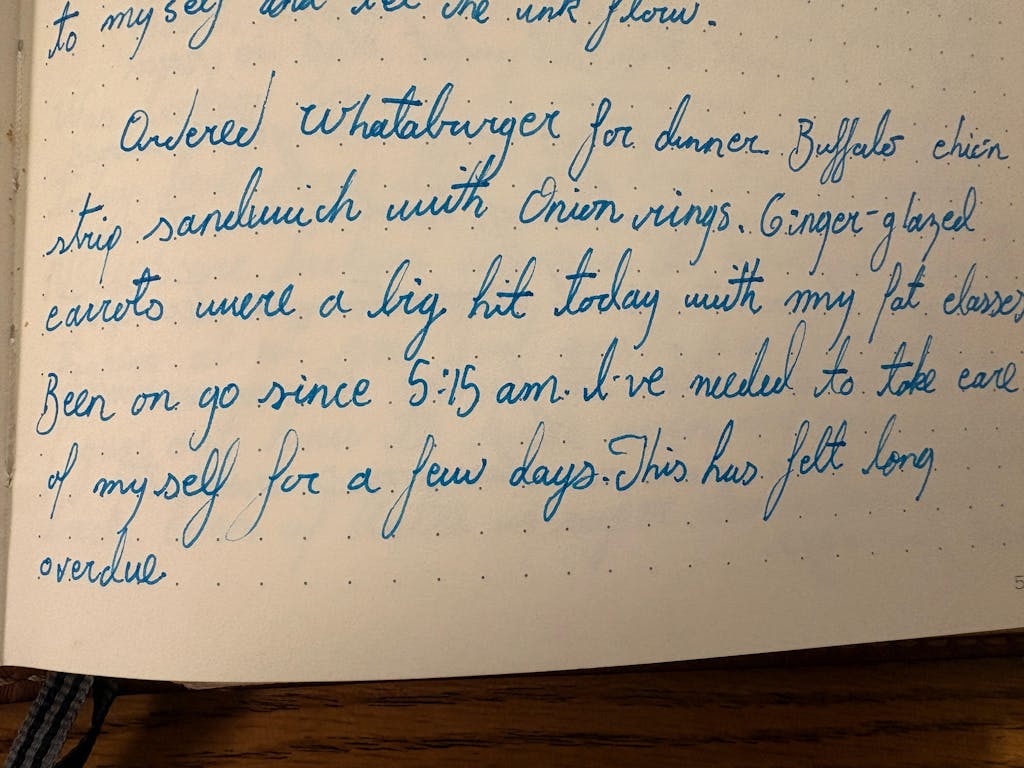 to myself and let the ink flow.
Ordered Whataburger for dinner. Buffalo chicn
strip sandwich with Onion rings. Ginger-glazed
carrots were a big hit today with my fat classes
Been on go since 5:15 am. I've needed to take care
of myself for a few days. This has felt long
overdue.
5